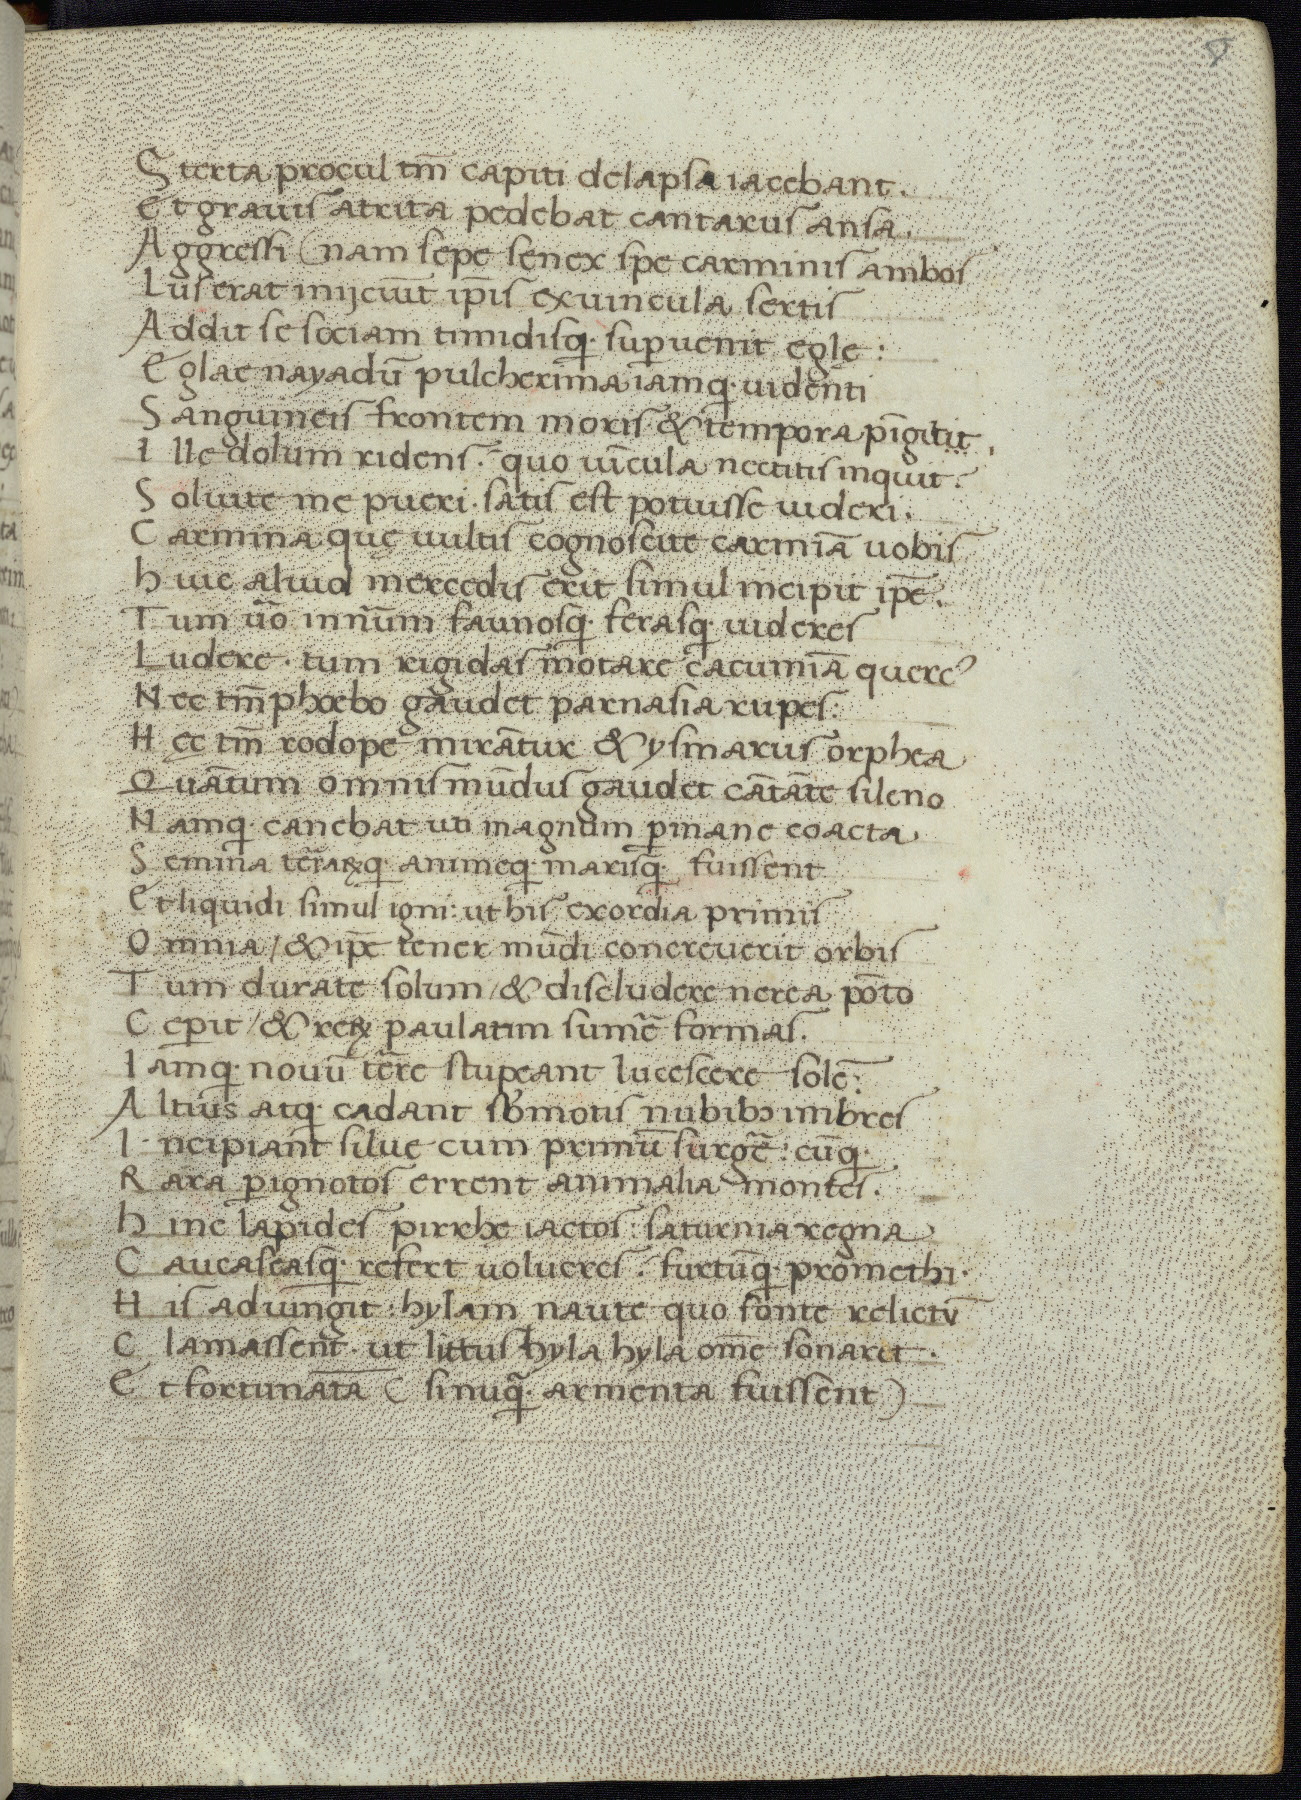 Sterta procul tm̄ capiti delapsa iacebant.
Et grauis atrita pedebat cantarus ansa.
Aggressi (nam sepe senex spe carminis ambos
Luserat inijciūt ip̄is ex uincula sertis
Addit se sociam timidisq· supuenit egle:
Eglae nayadū pulcherima iamq· uidenti
Sanguineis frontem moris & tempora pīgitit.
Ille dolum ridens. quo uīcula nectitis inquit.
Soluite me pueri. satis est potuisse uideri.
Carmina que uultis cognoscite carmīa uobis
Huic aliud mercedis erit simul incipit ip̄e.
Tum ūo innūm faunosq· ferasq· uideres
Ludere. tum rigidas motare cacumīa querc᷒
Nec tm̄ phoebo gaudet parnasia rupes:
Hec tm̄ rodope mirātur & ysmarus orphea
Quātum omnis mūdus gaudet cātāte sileno
Namq· canebat uti magnum p inane coacta
Semina terraꝝq· animeq· marisq· fuissent
Et liquidi simul igni: ut his exordia primis
Omnia / & ip̄e tener mūdi concreuerit orbis
Tum durate solum / & discludere nerea pōto
Cepit / & reꝝ paulatim sum̄e formas.
Iamq· nouū terre stupeant lucescere solē:
Altius atq· cadant sb̄motis nubibꝫ imbres
Incipiant silue cum primū surgē̄: cūq·
Rara p ignotos errent animalia montes.
Hinc lapides pirrhe iactos: saturnia regna
Caucaseasq· refert uolucres. furtūq· promethi.
His adiungit: hylam naute quo fonte relictū
Clamassent. ut littus hyla hyla om̄e sonaret.
Et fortunatā (si nuq̄· armenta fuissent)